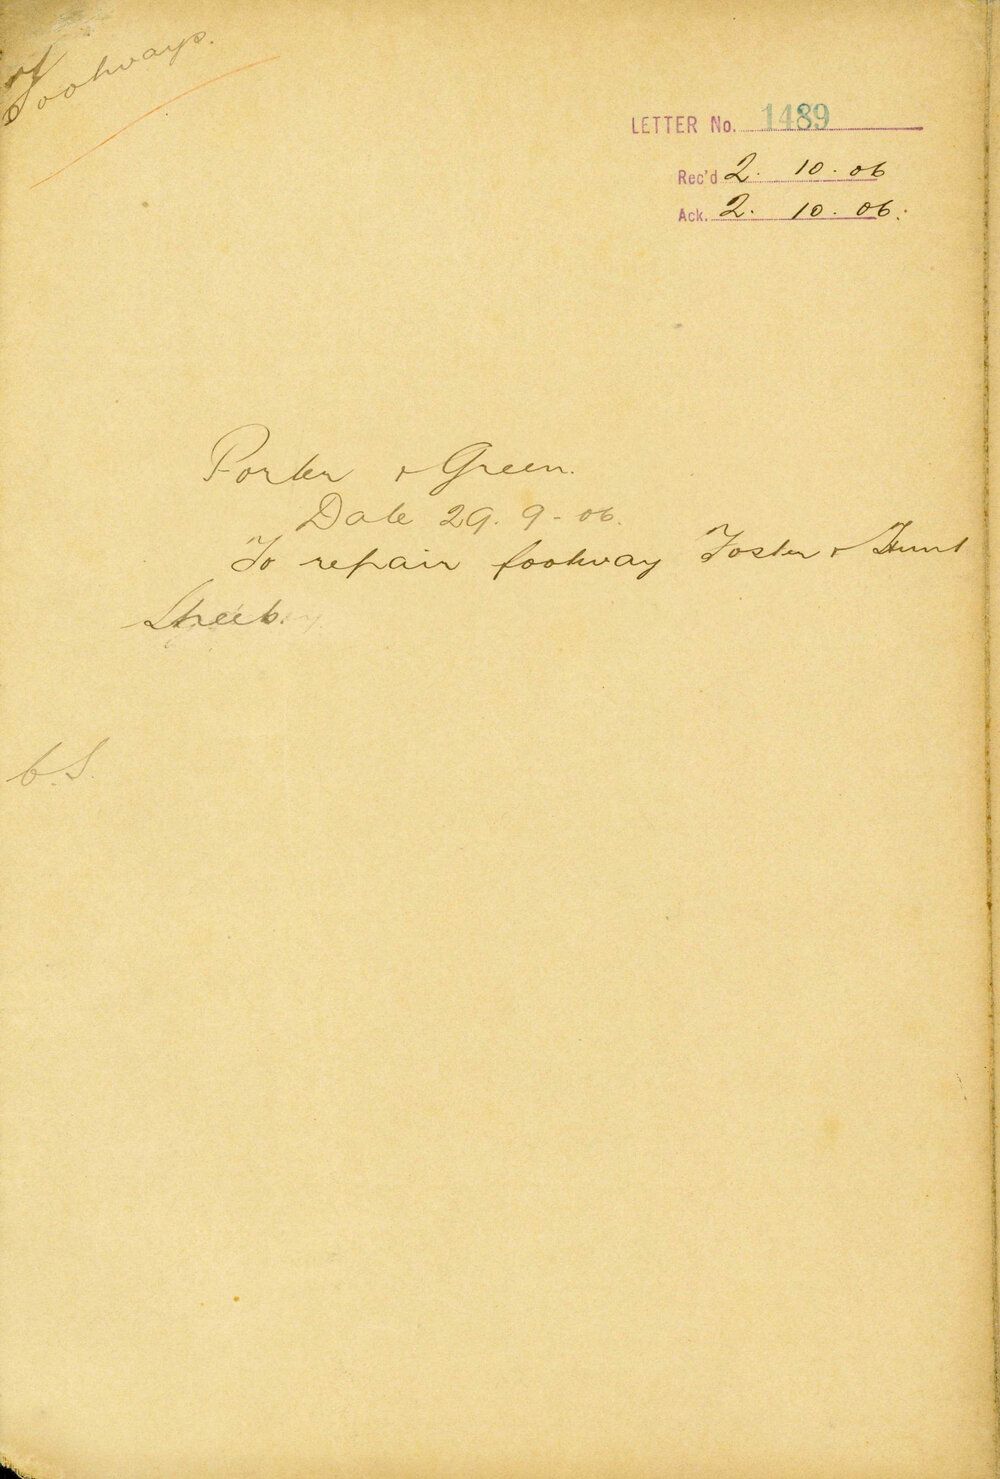 Footways.
LETTER No. 1489
Rec'd 2. 10. 06
Ack. 2. 10. 06.
Porter & Green.
Date 29. 9-06.
To repair footway Foster & Hunt
Streets.
C.S.